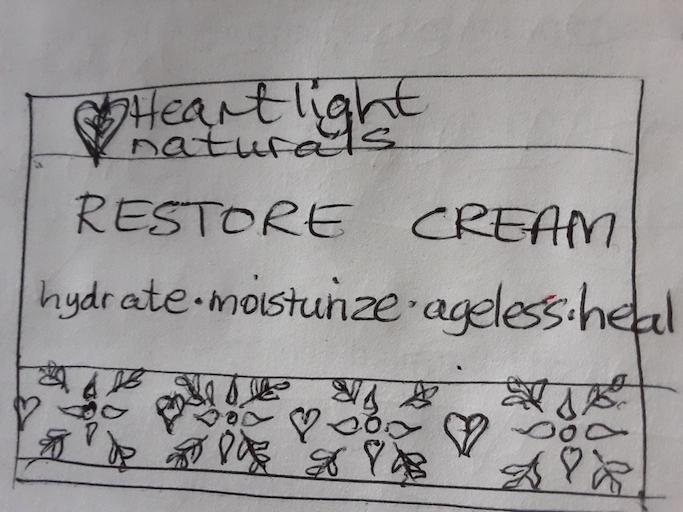 Heartlight
naturals
RESTORE CREAM
hydrate·moisturize·ageless·heal